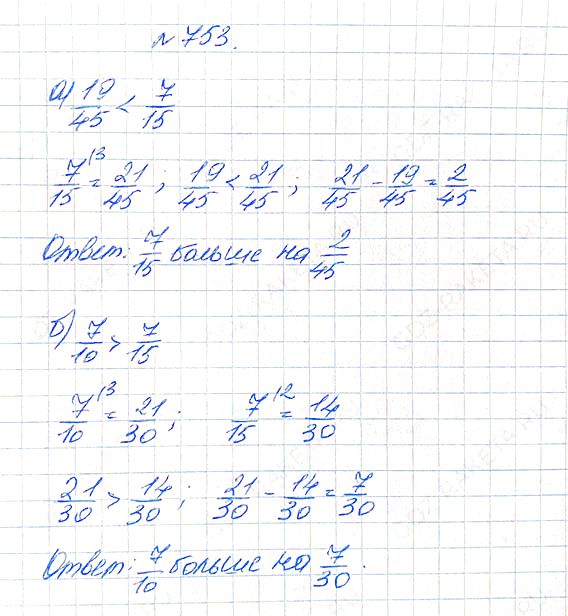 № 753.
а) 19/45 < 7/15
7/15 ⁽³ = 21/45 ; 19/45 < 21/45 ; 21/45 - 19/45 = 2/45
Ответ: 7/15 больше на 2/45
б) 7/10 > 7/15
7/10 ⁽³ = 21/30 ; 7/15 ⁽² = 14/30
21/30 > 14/30 ; 21/30 - 14/30 = 7/30
Ответ: 7/10 больше на 7/30.